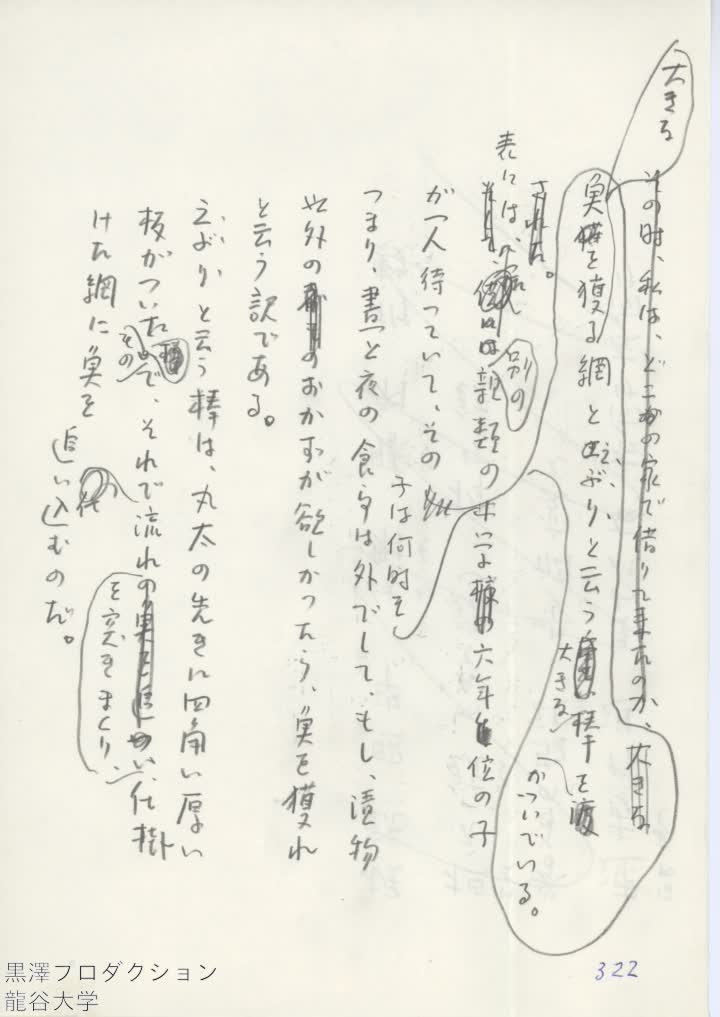 大きな
その時、私は、どこかの家で借りて来たのか、大きな
魚を獲る網と立、ぶ、り、と云う大きな棒を渡
された。
かついでいる。
表には、別の親類の小学校の六年生位の子
が一人待っていて、その
子は何時を
つまり、晝と夜の食事は外でして、もし、漬物
以外のおかずが欲しかったら、魚を獲れ
と云う訳である。
立、ぶ、り、と云う棒は、丸太の先きに四角い厚い
板がついたもので、それで流れの魚を追い、仕掛
を突きまくり、
けた網に魚を追い込むのだ。
322
黒澤プロダクション
龍谷大学